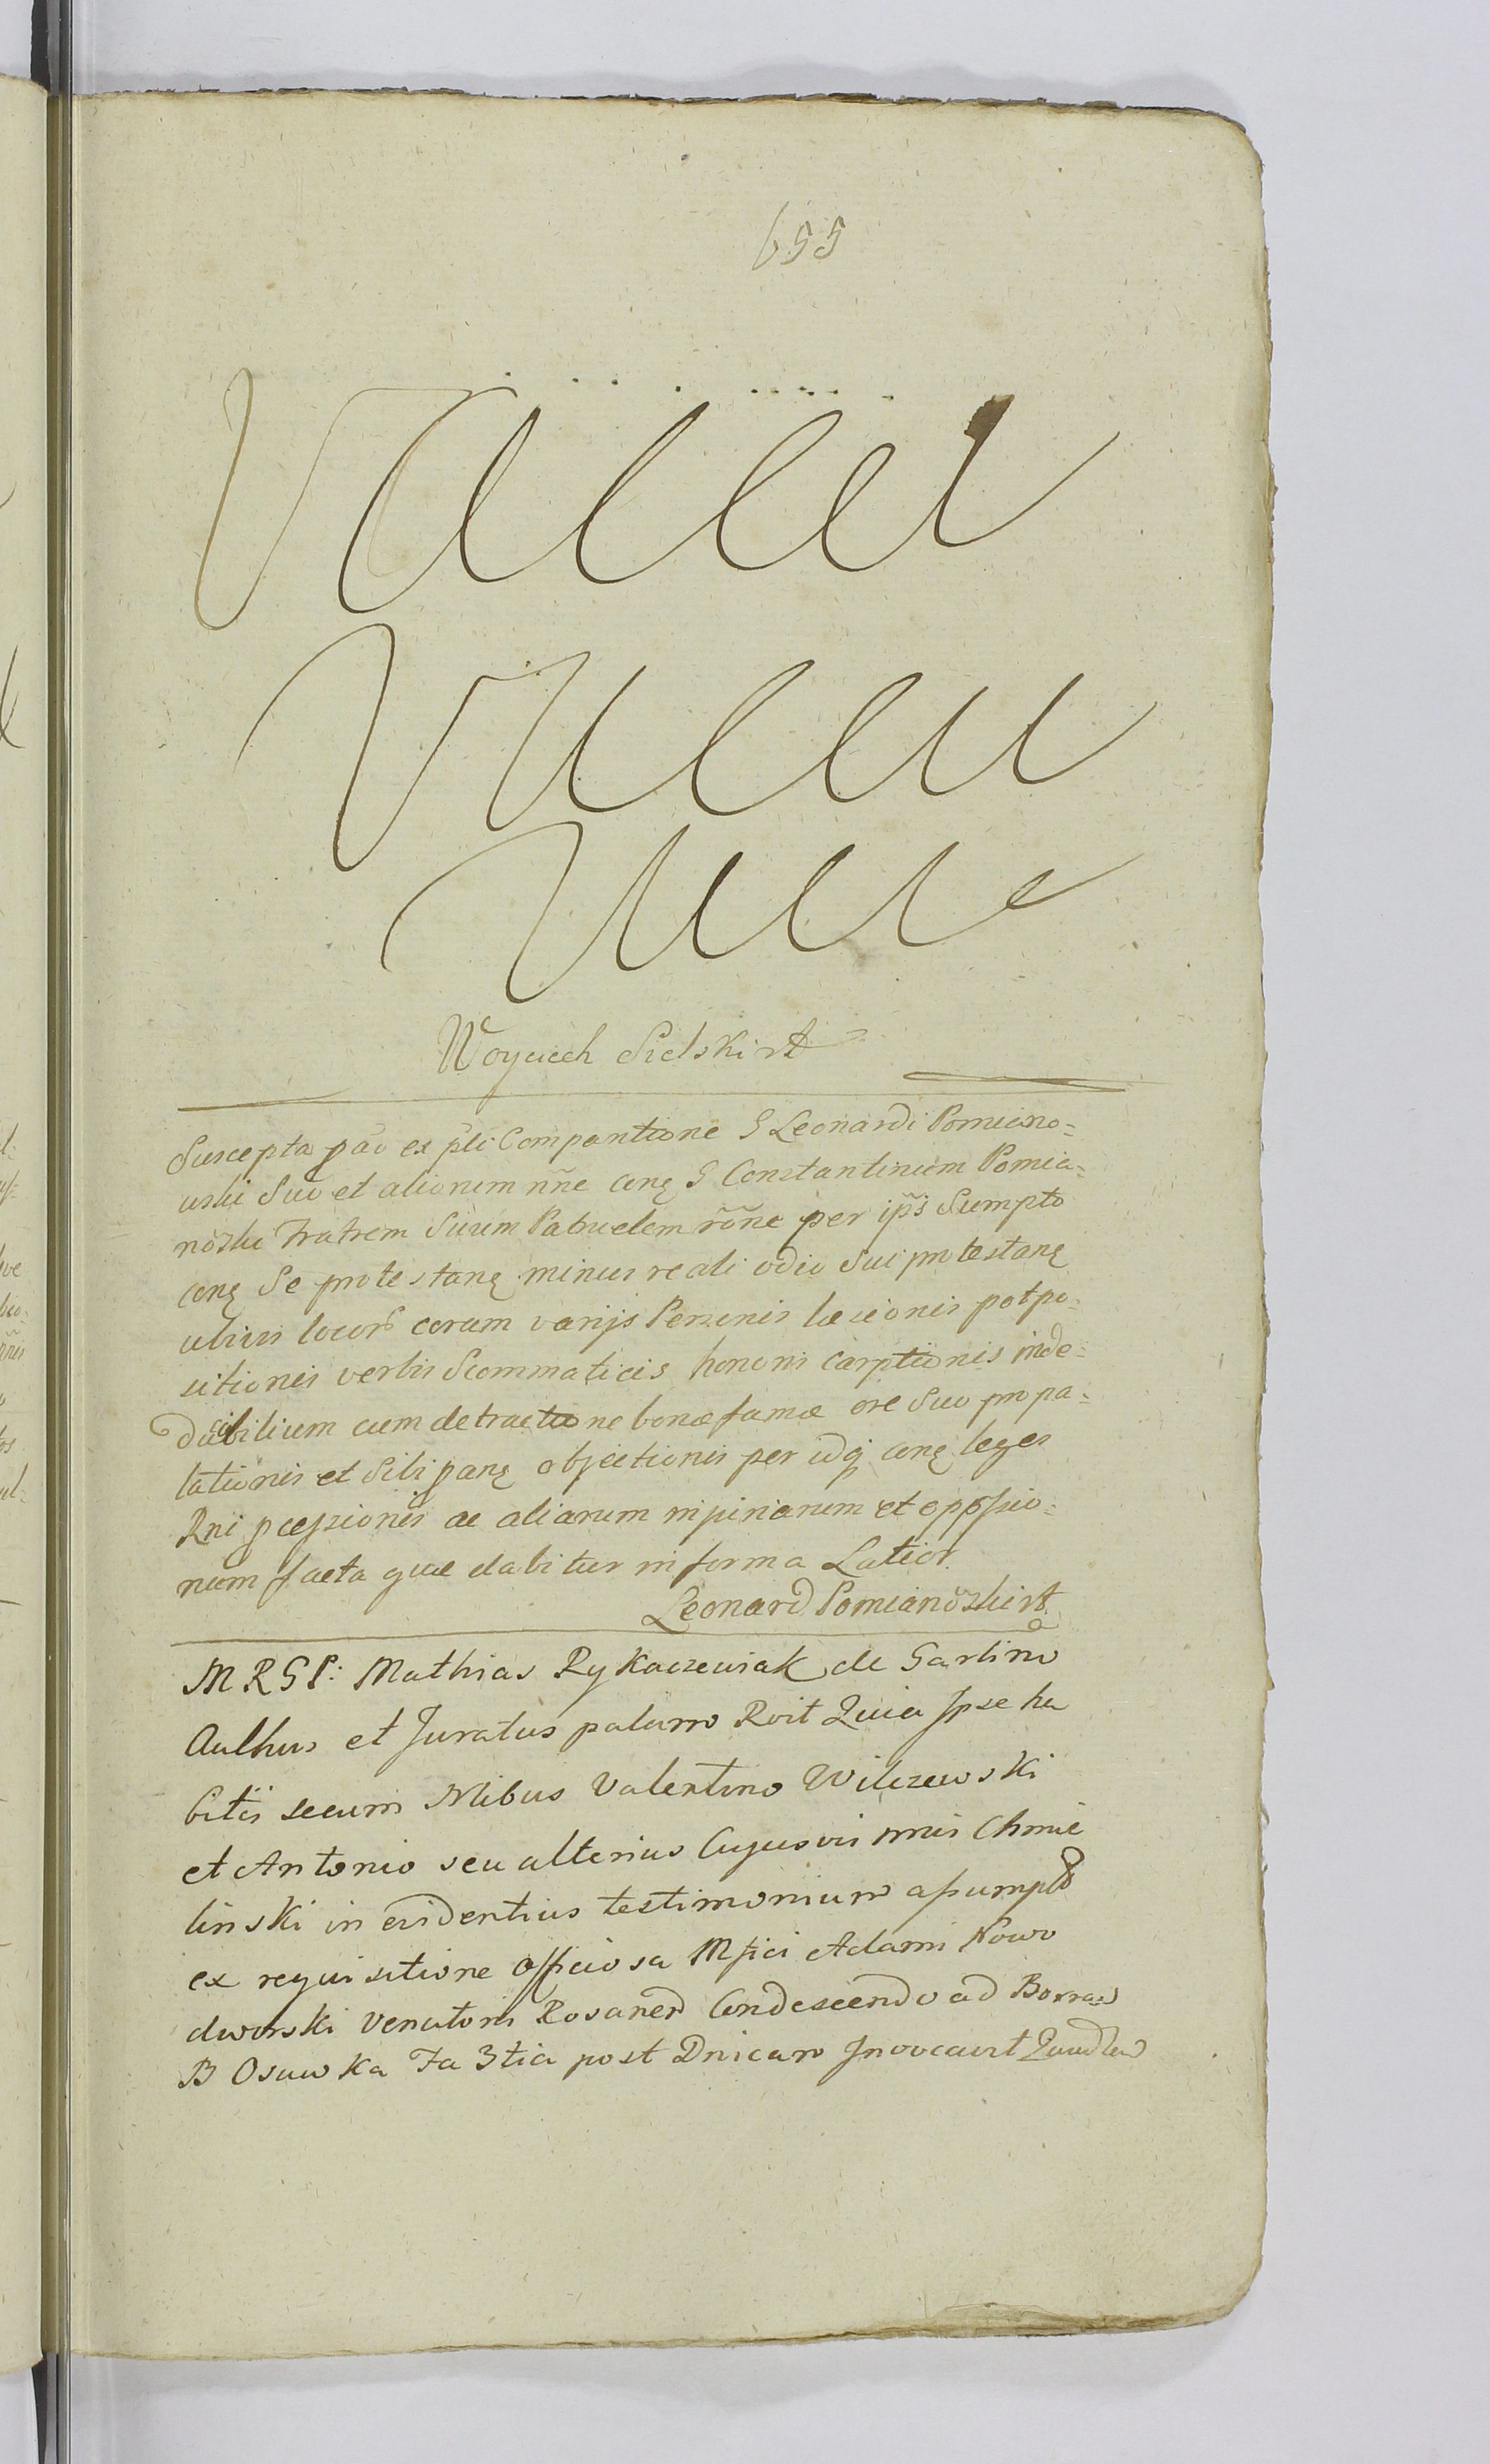 655
Vacat
Woyciech Sielski rt
Suscepta pao ex pti Compantione G Leonardi Pomiano=
wski Suo et aliorum nñe conę G Constantinum Pomia=
nowski Fratrem Suum Patruelem rõne per ipñs Sumpto
conę Se protestanę minus reali odio Sui protestanę
ubivis locor coram varijs Personis læsionis potpo=
sitionis verbis Scommaticis honoris carptionis inde=
dicibilium cum detractione bonæ famæ ore Suo propa=
lationis et Sibi panę objectionis per idq conę leges
Rni pcessionis ac aliarum injuriarum et oppõssio=
num facta quae dabitur in forma Latior
Leonard Pomianowski rt
M R G P: Mathias Rykaczewiak de Garlino
Aulhus et Juratus palam Roit Quia Ipse ha
bitis secum Nlibus Valentino Wilczewski
et Antonio seu alterius Cujusvis nnis Chmie
linski in evidentius testimonium assumpto
ex requisitione officiosa Mfici Adami Nowo
dworski Venatoris Rosanen Condescendo ad Bonna
B Osuwka Fa 3tia post Dnicam Invocavit